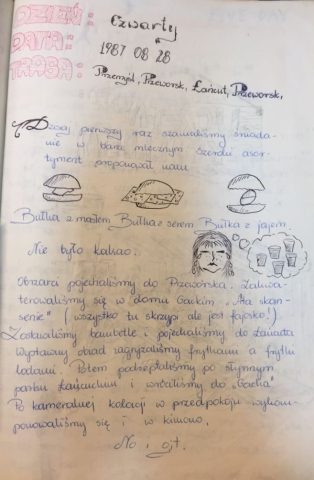 DZIEŃ:
Czwarty
DATA:
1987 08 28
TRASA:
Przemyśl, Przeworsk, Łańcut, Przeworsk,
Dzisiaj pierwszy raz szamaliśmy śniada-
nie w barze mlecznym. Szeroki asor-
tyment proponował nam
Bułka z masłem Bułka z serem Bułka z jajem.
Nie było kakao.
pojechaliśmy do Przeworska. Zakwa-
terowaliśmy się w domu Gackim „Ala skan-
senie" (wszystko tu skrzypi ale jest fajosko!)
Zostawiliśmy tambetle i pojechaliśmy do Łańcuta
Wyprawny obiad zagryzaliśmy frytkami a frytki
lodami. Potem podreptaliśmy po słynnym
parku Łańcuckim i wróciliśmy do „Gacka"
Po kameralnej kolacji w przedpokoju wykom-
ponowaliśmy się i w kimono.
No i cjt.